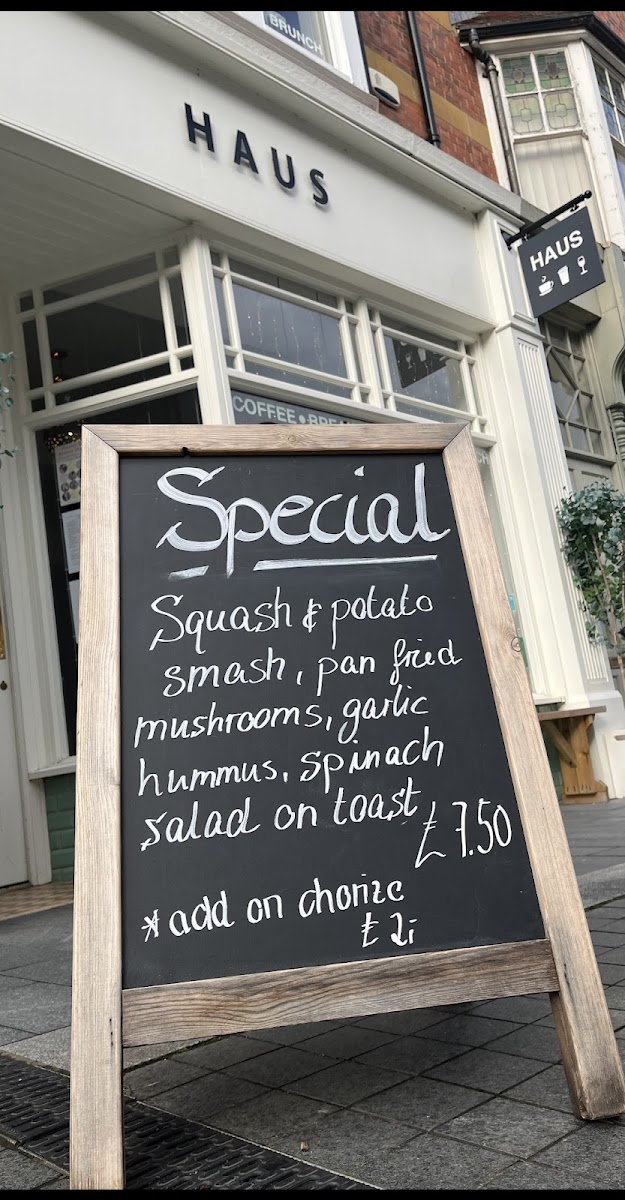 BRUNCH
HAUS
HAUS
COFFEE •
Special
Squash & potato
smash, pan fried
mushrooms, garlic
hummus, spinach
salad on toast
£7.50
*add on chorizo
£2,-